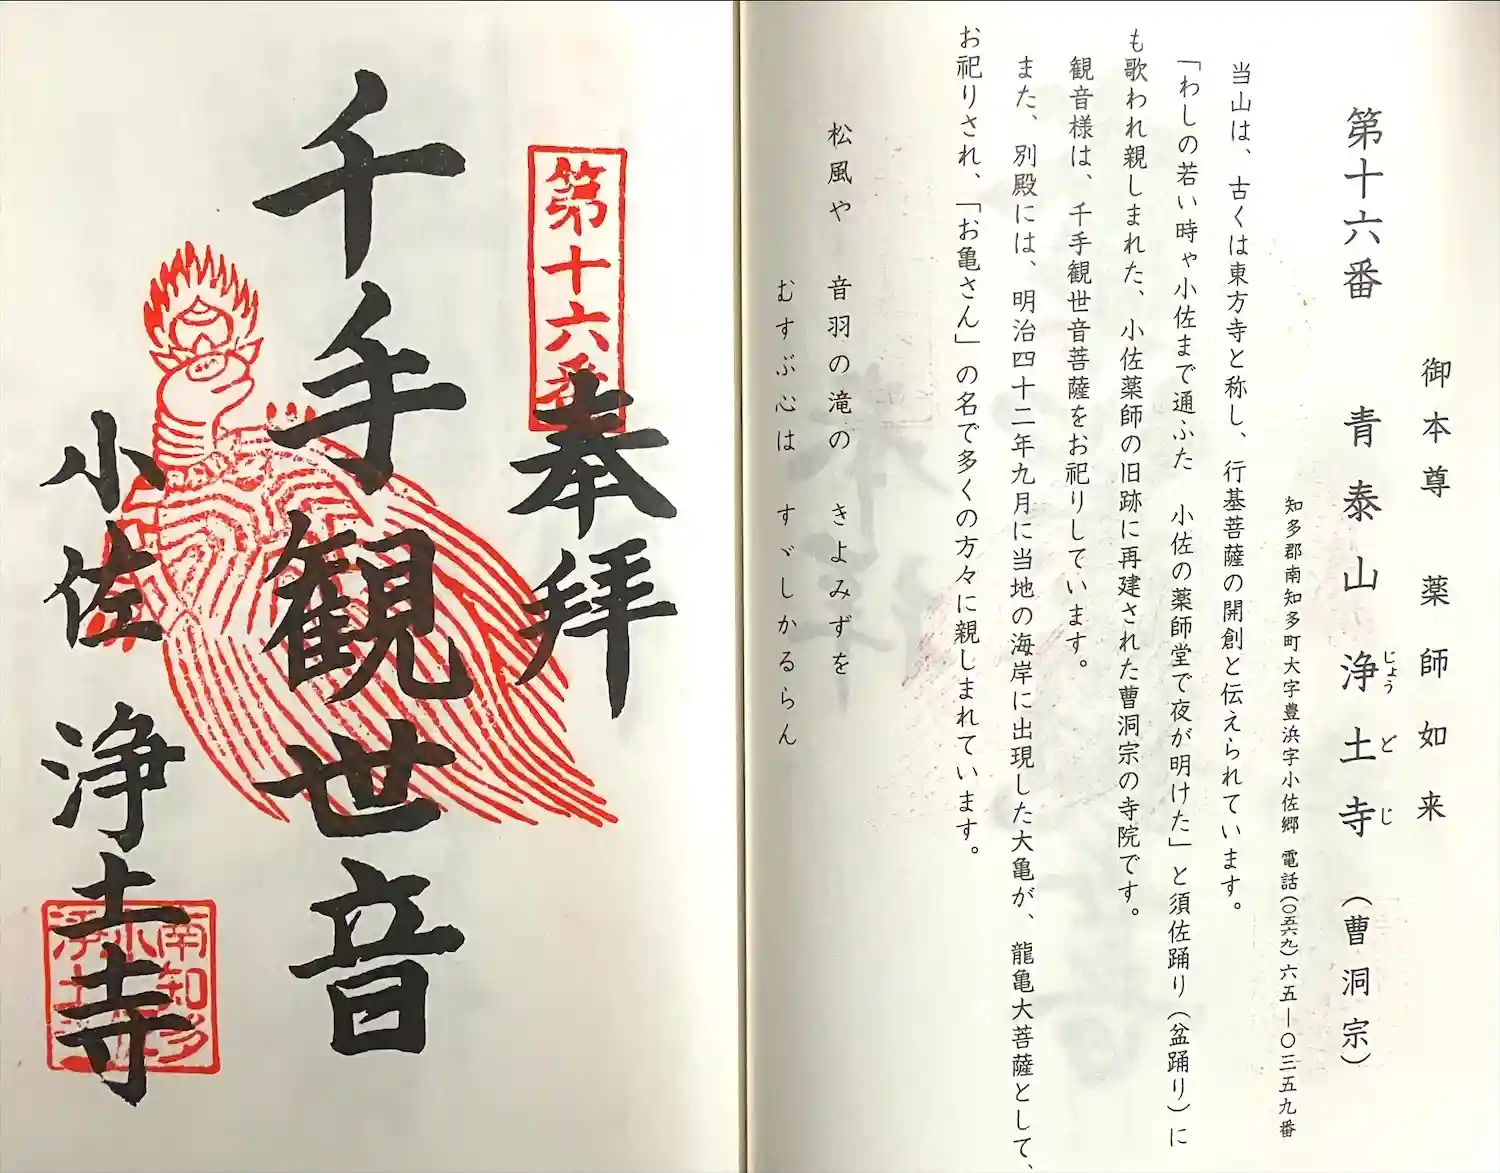 御本尊　薬師如来
第十六番　青泰山　浄土寺　（曹洞宗）
じょうどじ
知多郡南知多町大字豊浜字小佐郷　電話（〇五六九）六五―〇三五九番
当山は、古くは東方寺と称し、行基菩薩の開創と伝えられています。
「わしの若い時ゃ小佐まで通ふた　小佐の薬師堂で夜が明けた」と須佐踊り（盆踊り）に
も歌われ親しまれた、小佐薬師の旧跡に再建された曹洞宗の寺院です。
観音様は、千手観世音菩薩をお祀りしています。
また、別殿には、明治四十二年九月に当地の海岸に出現した大亀が、龍亀大菩薩として、
お祀りされ、「お亀さん」の名で多くの方々に親しまれています。
松風や　音羽の滝の　きよみずを
むすぶ心は　すゞしかるらん
第十六番
奉拝
千手観世音
小佐　浄土寺
南知多